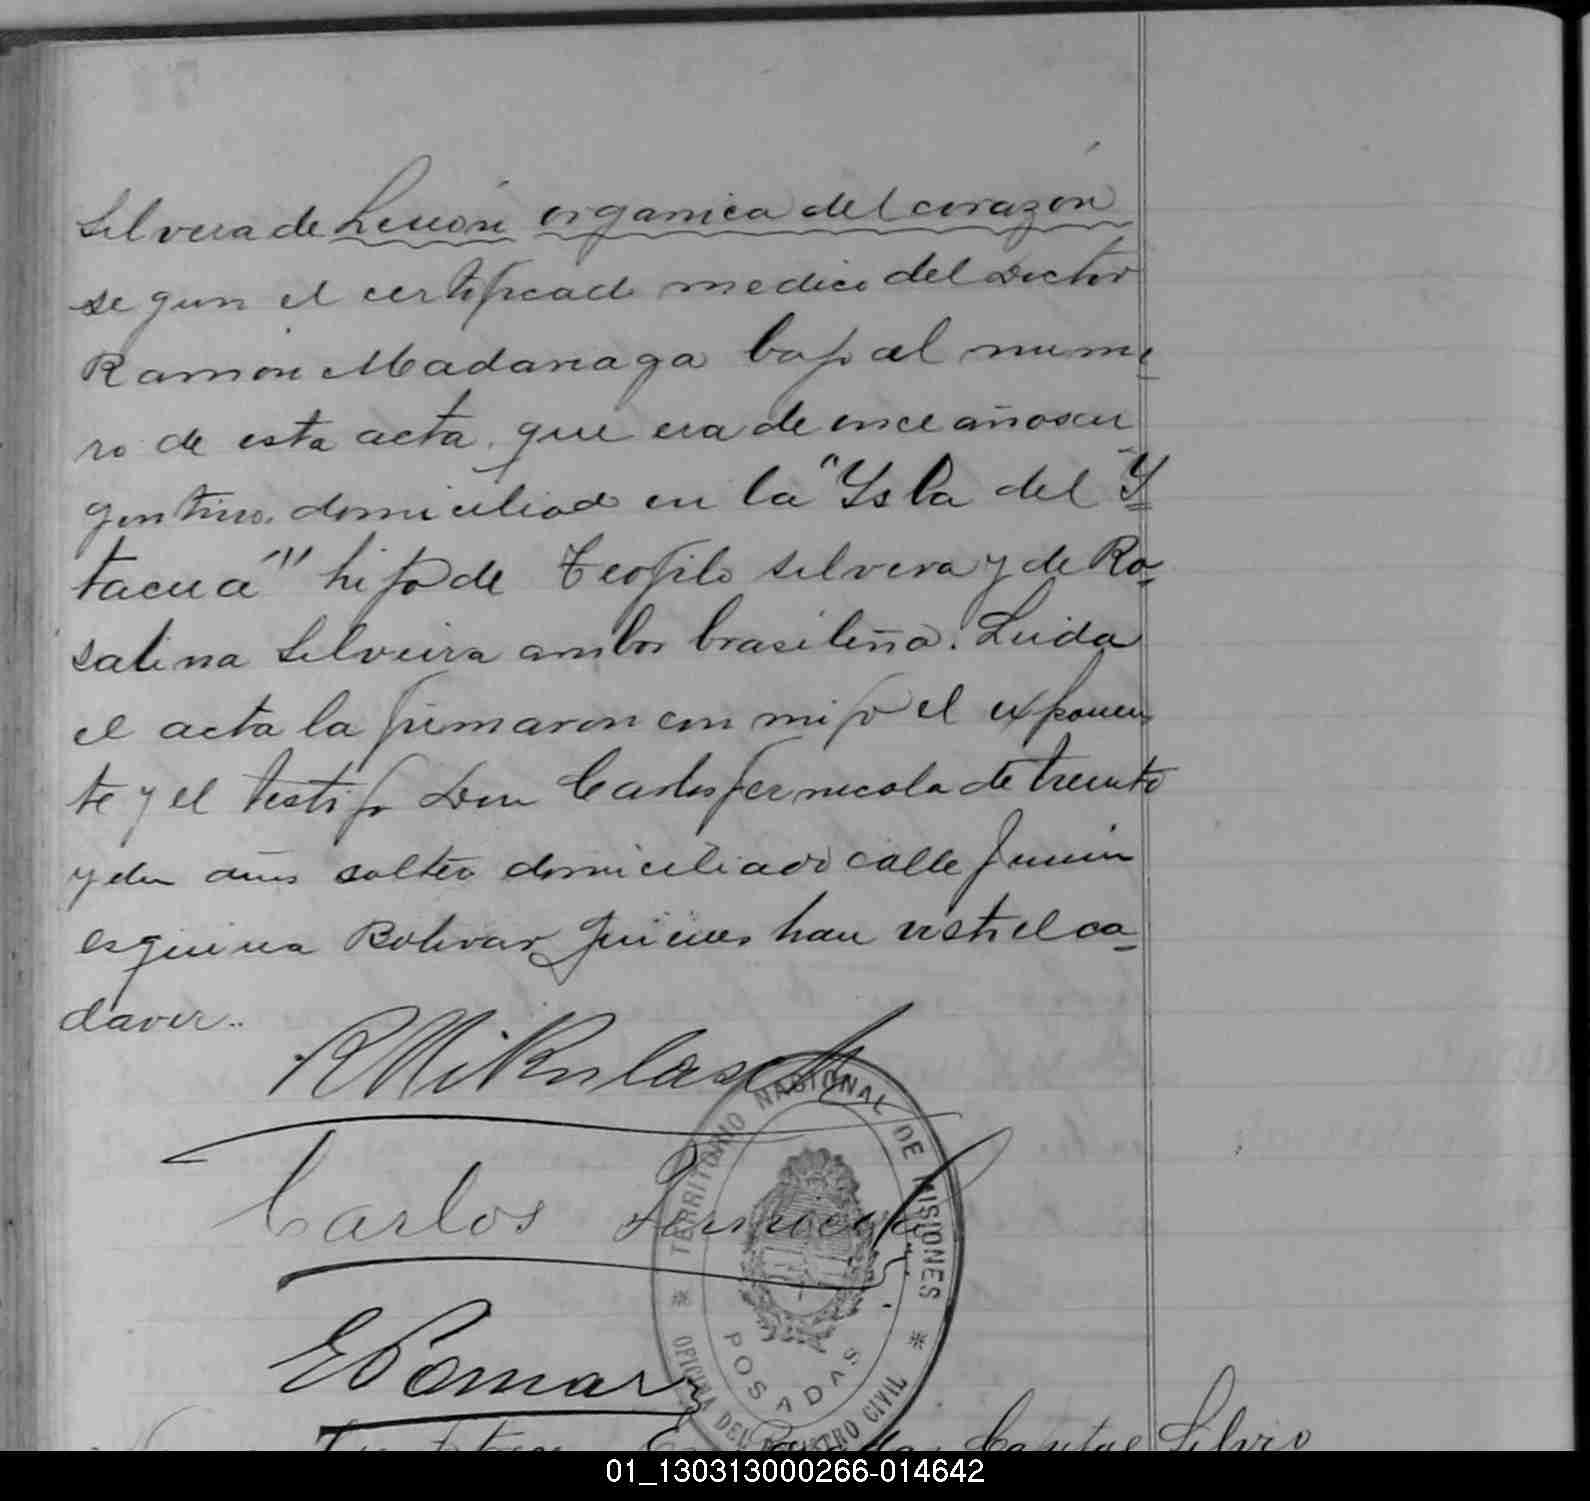 Silvera de Lesión organica del corazón
segun el certificado medico del Doctor
Ramon Madariaga bajo el nume
ro de esta acta, que era de once años ar
gentino, domiciliado en la "Ysla del Y
tacua" hijo de Teofilo Silvera y de Ro-
salina Silveira ambos brasileña. Leida
el acta la firmaron conmigo el exponen
te y el testigo Don Carlos Fernicola de treinta
y dos años soltero domiciliado calle Junin
esquina Bolivar, quienes han visto el ca-
daver..
Carlos
E Pomar
TERRITORIO NACIONAL DE MISIONES
OFICINA DEL REGISTRO CIVIL
POSADAS
Silvio
01_130313000266-014642